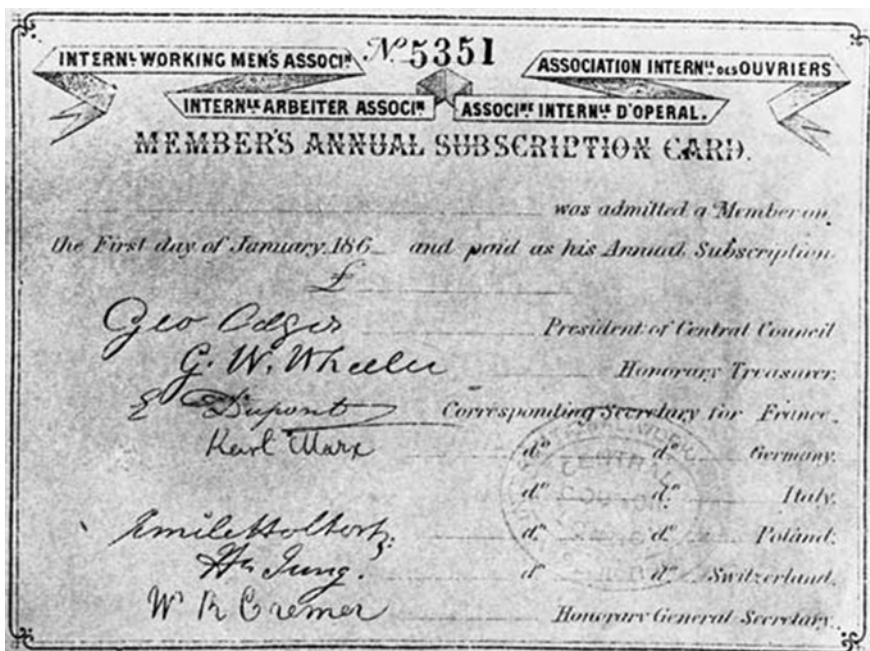 Nº 5351
INTERNL WORKING MEN'S ASSOCIN
ASSOCIATION INTERNLE DES OUVRIERS
INTERNLE ARBEITER ASSOCIN
ASSOCINE INTERNLE D'OPERAL.
MEMBER'S ANNUAL SUBSCRIPTION CARD.
was admitted a Member on
the First day of January 186_ and paid as his Annual Subscription
£
Geo Odger President of Central Council
G. W. Wheeler Honorary Treasurer.
E Dupont Corresponding Secretary for France.
Karl Marx do do Germany.
do do Italy.
Emile Holtorp. do do Poland.
Hn Jung. do do Switzerland.
W R Cremer Honorary General Secretary.
CENTRAL